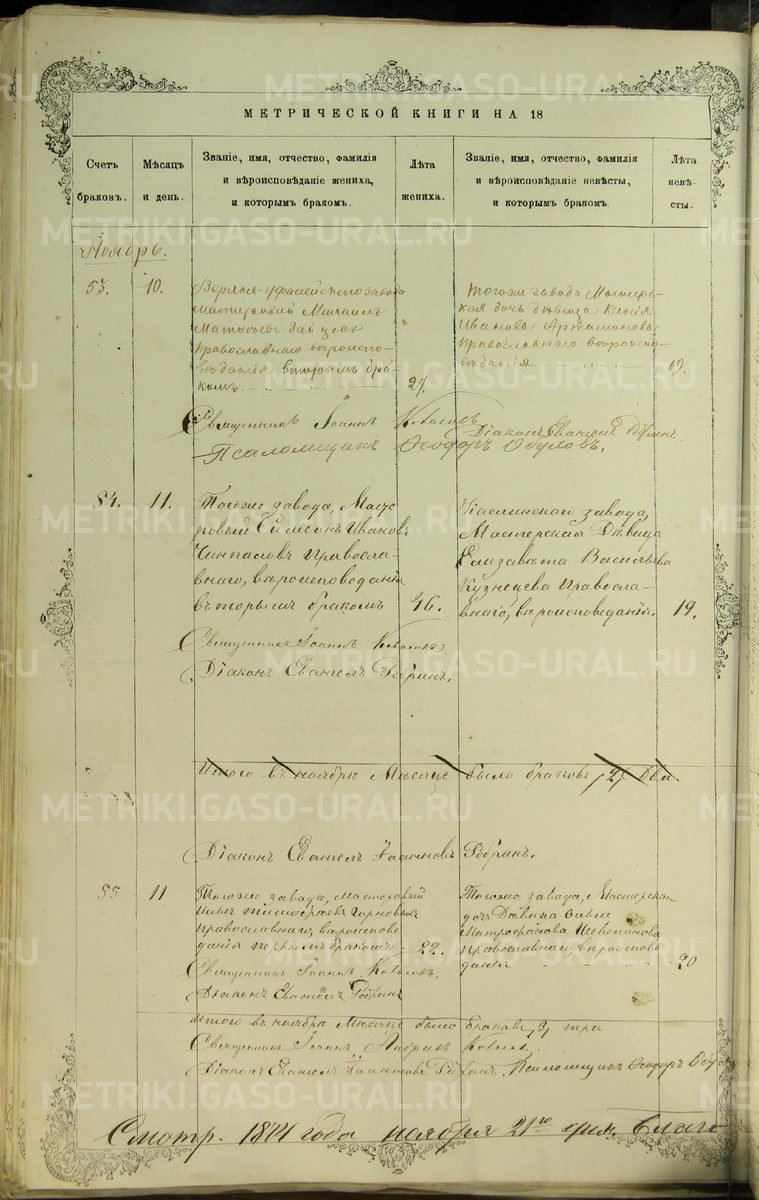 МЕТРИЧЕСКОЙ КНИГИ НА 18
Счетъ браковъ.
Мѣсяцъ и день.
Званіе, имя, отчество, фамилія
и вѣроисповѣданіе жениха,
и которымъ бракомъ.
Лѣта жениха.
Званіе, имя, отчество, фамилія
и вѣроисповѣданіе невѣсты,
и которымъ бракомъ.
Лѣта невѣсты.
Ноябрь.
53. 10.
Верхне-Уфалейскаго завода
мастеровой Михаилъ
Матвѣевъ Зайцевъ
православнаго вѣроиспо-
вѣданія вторымъ бра-
комъ. 27.
Тогоже завода Мастерс-
кая дочь дѣвица Ксенія
Иванова Артамонова
православнаго вѣроиспо-
вѣданія. 19.
Священникъ Іоаннъ
Діаконъ Евангелъ
Псаломщикъ Ѳеодоръ
54. 11.
Тогоже завода, Масте-
ровый Симеонъ Ивановъ
Православ-
наго, вѣроисповеданія
вторымъ бракомъ 46.
Каслинскаго завода,
Мастерская Дѣвица
Елизавета Васильева
Кузнецева Правосла-
внаго, вѣроисповеданія. 19.
Священникъ Іоаннъ
Діаконъ Евангелъ
Итого въ ноябрѣ Мѣсяце было браковъ /2/ два.
Діаконъ Евангелъ Іоанновъ
55 11
Тогоже завода, Мастеровый
православнаго, вѣроиспове
данія первымъ бракомъ 22.
Тогоже завода, Мастерская
дочь Дѣвица
Митрофанова
православнаго, вѣроиспове
данія 20
Священникъ Іоаннъ
Діаконъ Евангелъ
Итого въ ноябрѣ Мѣсяце было браковъ /3/ три
Священникъ Іоаннъ
Діаконъ Евангелъ Іоанновъ Псаломщикъ Ѳеодоръ
Смотр. года ноября 21го дня. Благо
METRIKI.GASO-URAL.RU